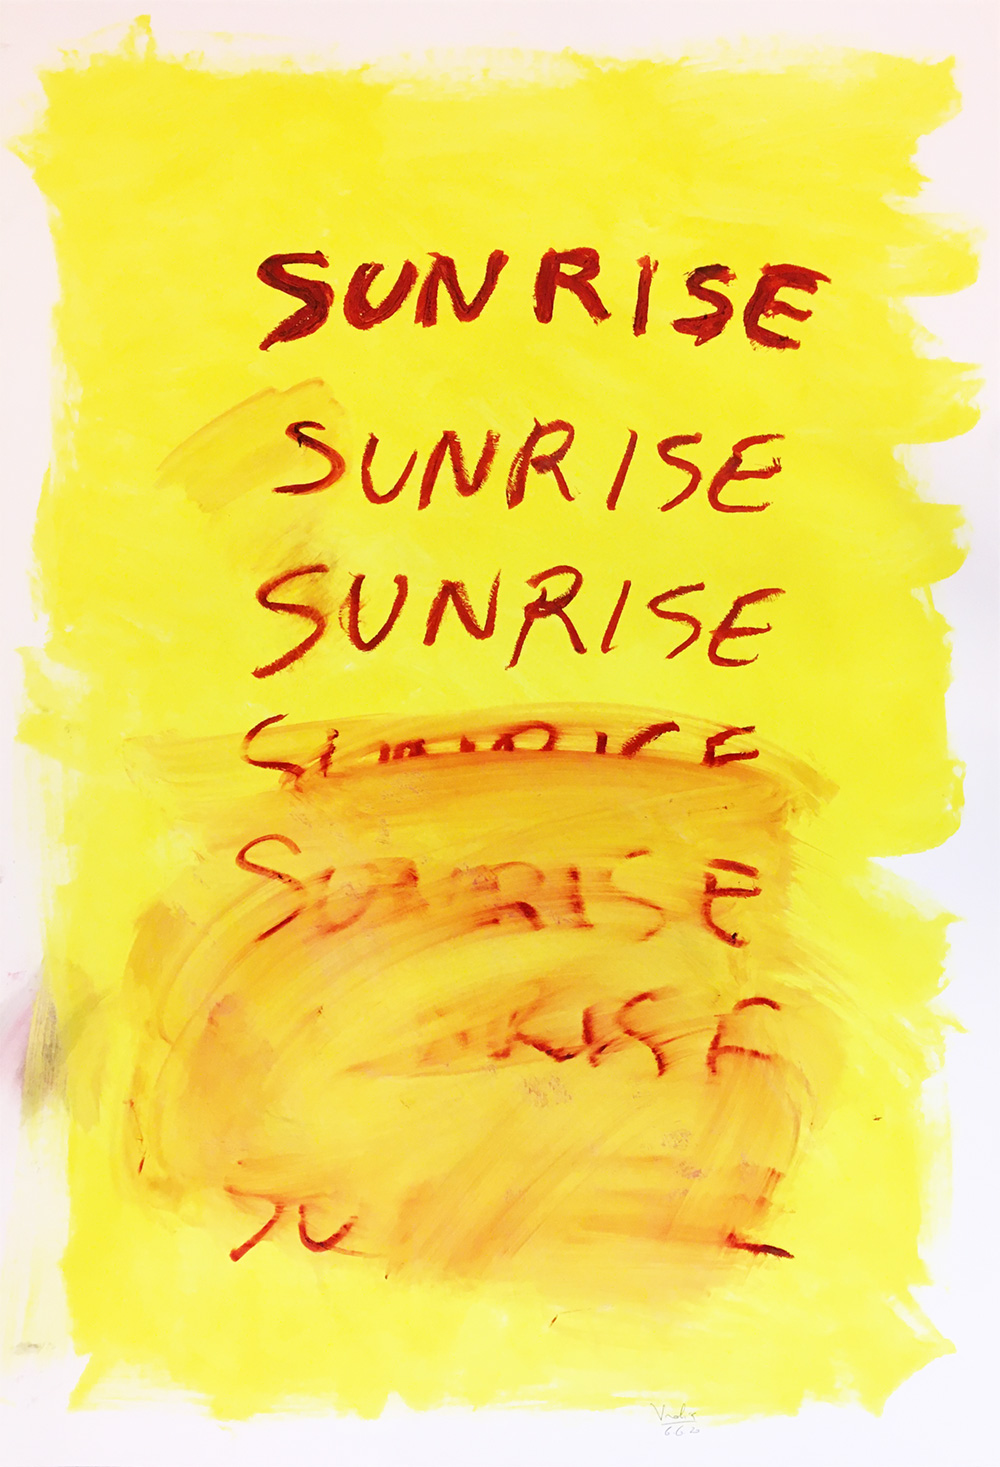 SUNRISE
SUNRISE
SUNRISE
SUNRISE
SUNRISE
RISE
SU E
6.6 20